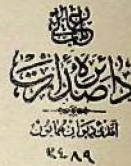 باب عالی
دائرهٔ صدارت
آمدی دیوان همایون
٣٤٨٩